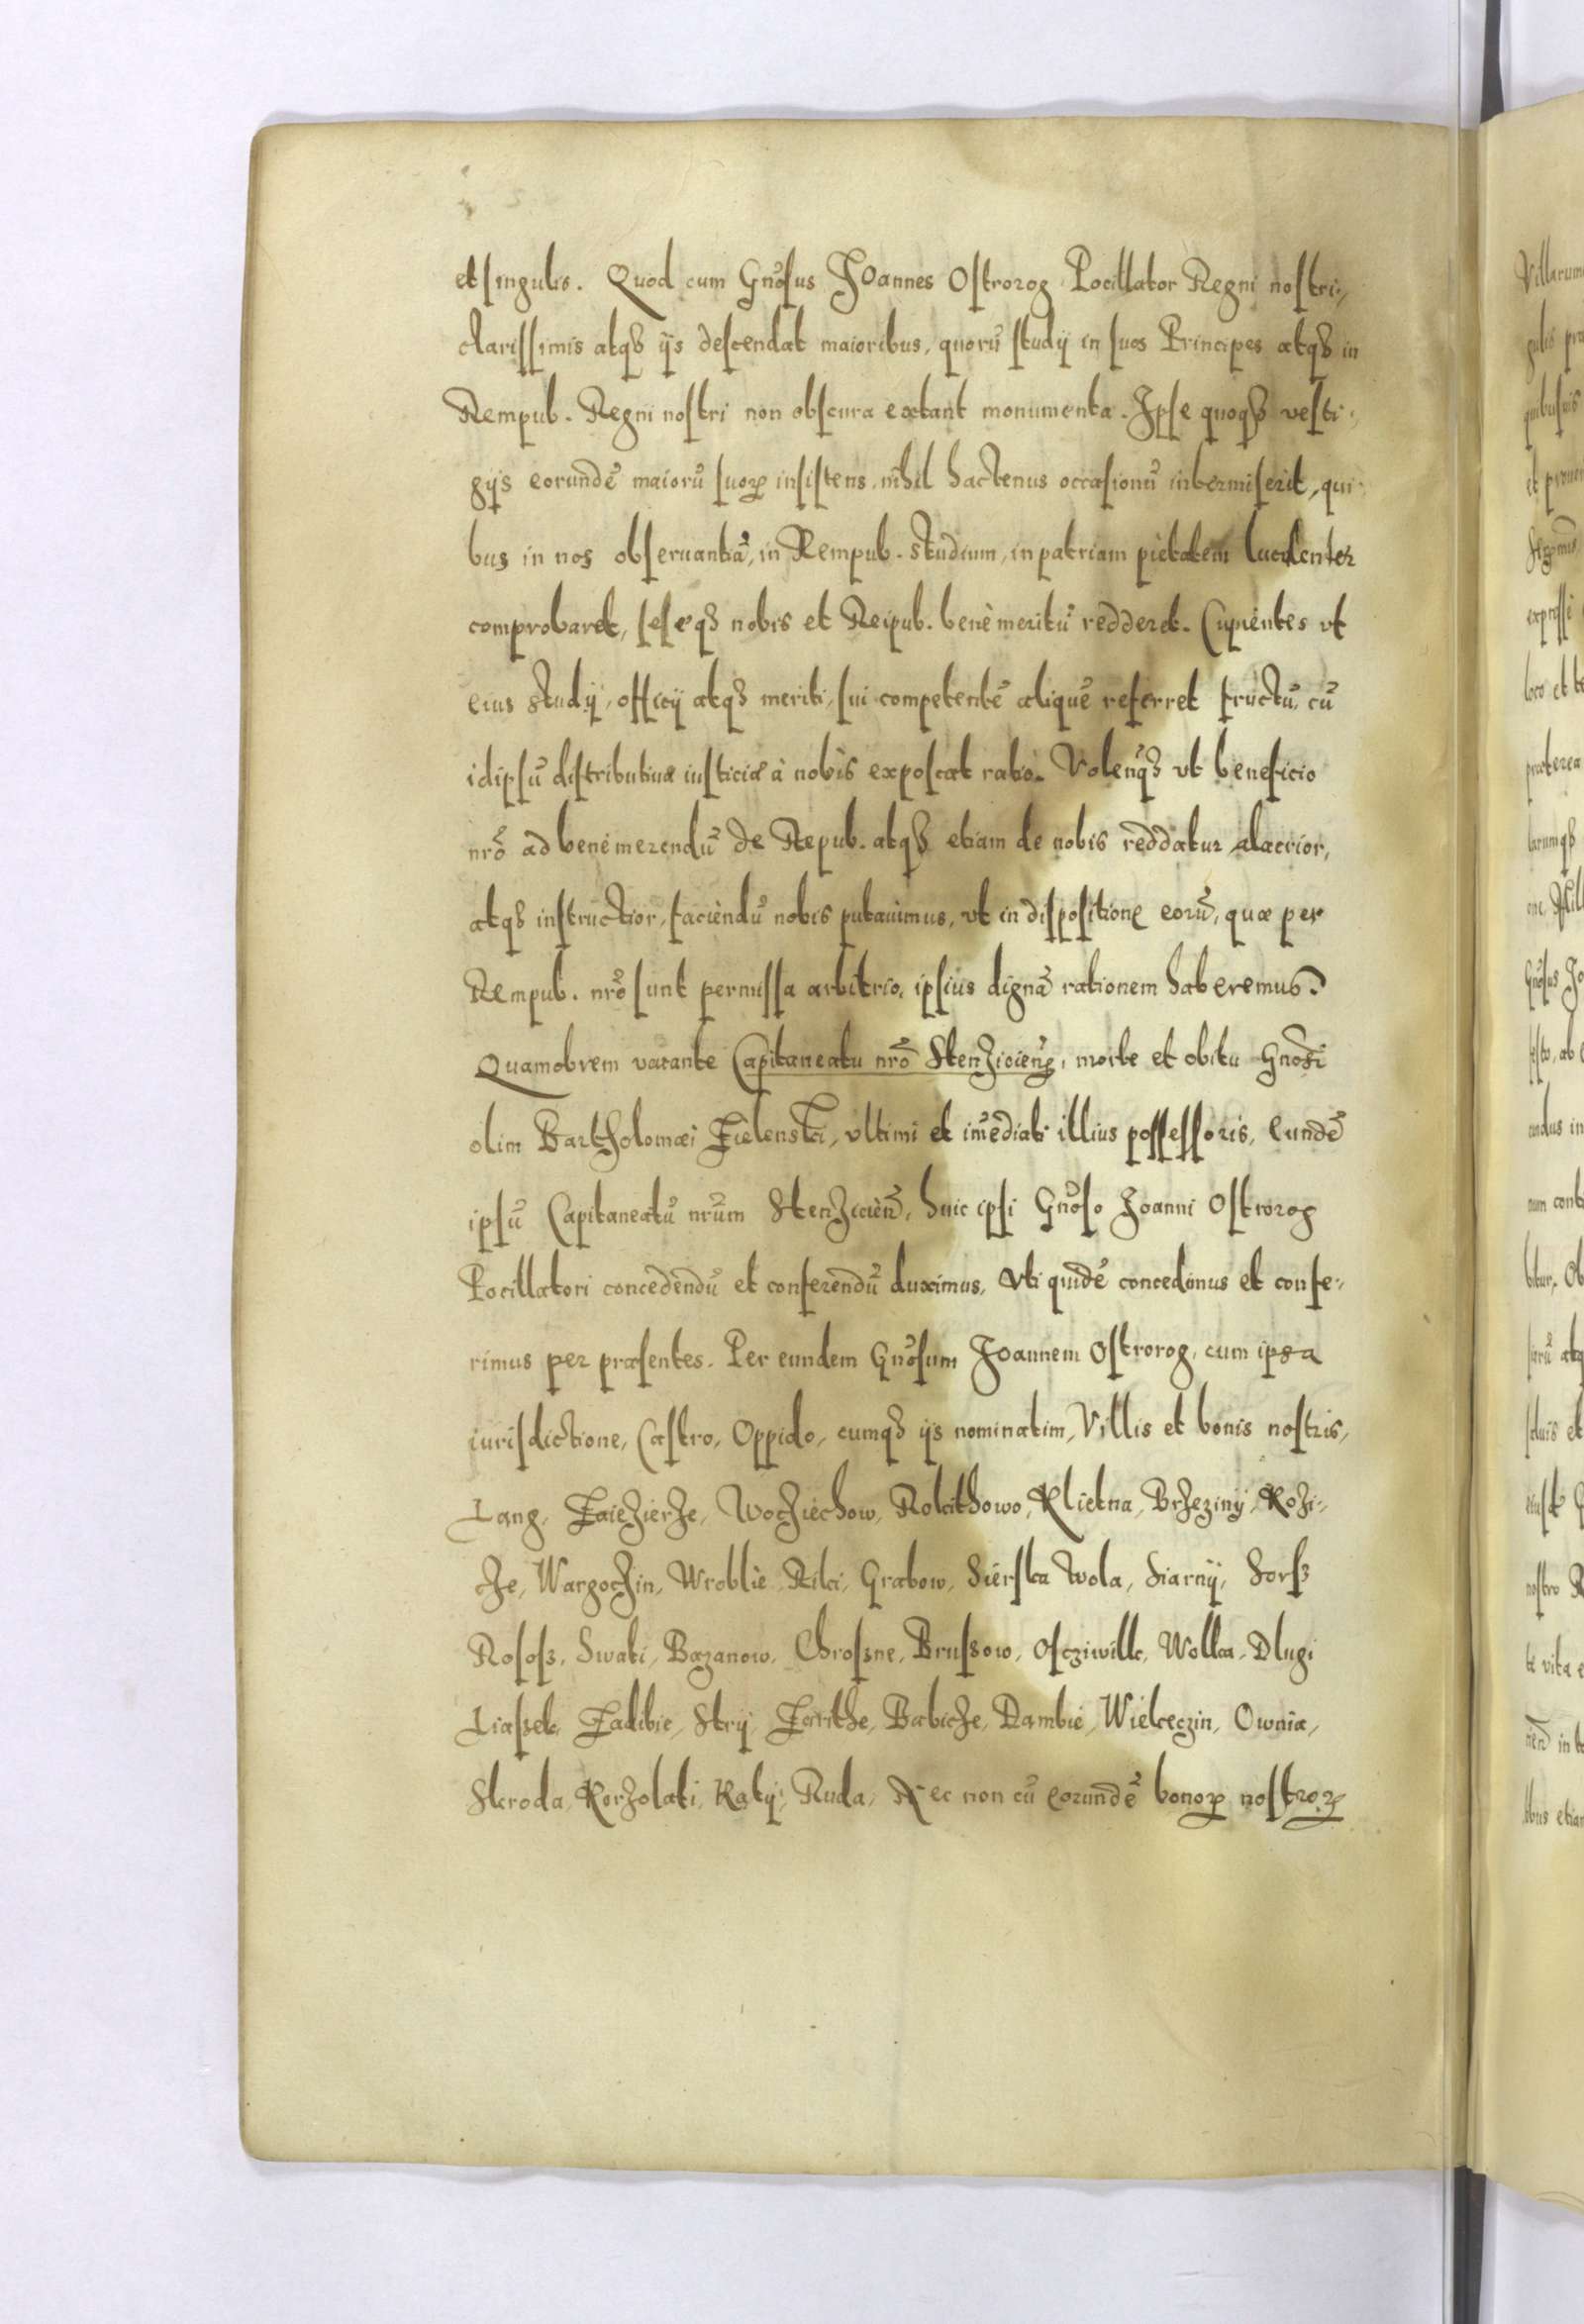 et singulis. Quod cum Gnõsus Joannes Ostrorog Pocillator Regni nostri,
clarissimis atqʒ ijs descendat maioribus, quorũ studij in suos Principes atqʒ in
Rempub. Regni nostri non obscura extant monumenta. Ipse quoqʒ vesti-
gijs eorundẽ maiorũ suoꝝ insistens, nihil hactenus occasionũ intermiserit, qui-
bus in nos obseruantiã, in Rempub. studium, in patriam pietatem luculenter
comprobaret, seseqʒ nobis et Reipub. benè meritũ redderet. Cupientes vt
eius studij, officij atqʒ meriti, sui competentẽ aliquẽ referret fructũ, cũ
idipsũ distributiuæ iusticiæ à nobis exposcat ratio. Volenqʒ vt beneficio
nrõ ad benemerendũ de Repub. atqʒ etiam de nobis reddatur alacrior,
atqʒ instructior, faciendũ nobis putauimus, vt in dispositione eorũ, quæ per
Rempub. nrõ sunt permissa arbitrio, ipsius dignã rationem haberemus.
Quamobrem vacante Capitaneatu nrõ Stenziciens, morte et obitu Gnõsi
olim Bartholomæi Zielenski, vltimi et imediati illius possessoris, Eundẽ
ipsũ Capitaneatũ nrũm Stenzicieñ, huic ipsi Gnõso Joanni Ostrorog
Pocillatori concedendũ et conferendũ duximus, Vti quidẽ concedimus et confe-
rimus per præsentes. Per eundem Gnõsum Joannem Ostrorog, cum ipsa
iurisdictione, Castro, Oppido, cumqʒ ijs nominatim, Villis et bonis nostris,
Lang, Zaiezierze, Wocziechow, Rokithowo, Klietna, Brzeziny, Kozi-
cze, Wargoczin, Wroblie, Riki, Grabow, Sierska Wola, Siarny,
Rososz, Swati, Bazanow, Chroszne, Bruszow, Wolka, Dlugi
Liaszek, Zadibie, Strij, Babicze, Dambie, Wielceczin, Ownia,
Skroda, Korzolati, Katij, Ruda, Nec non cũ eorundẽ bonoꝝ nostroꝝ